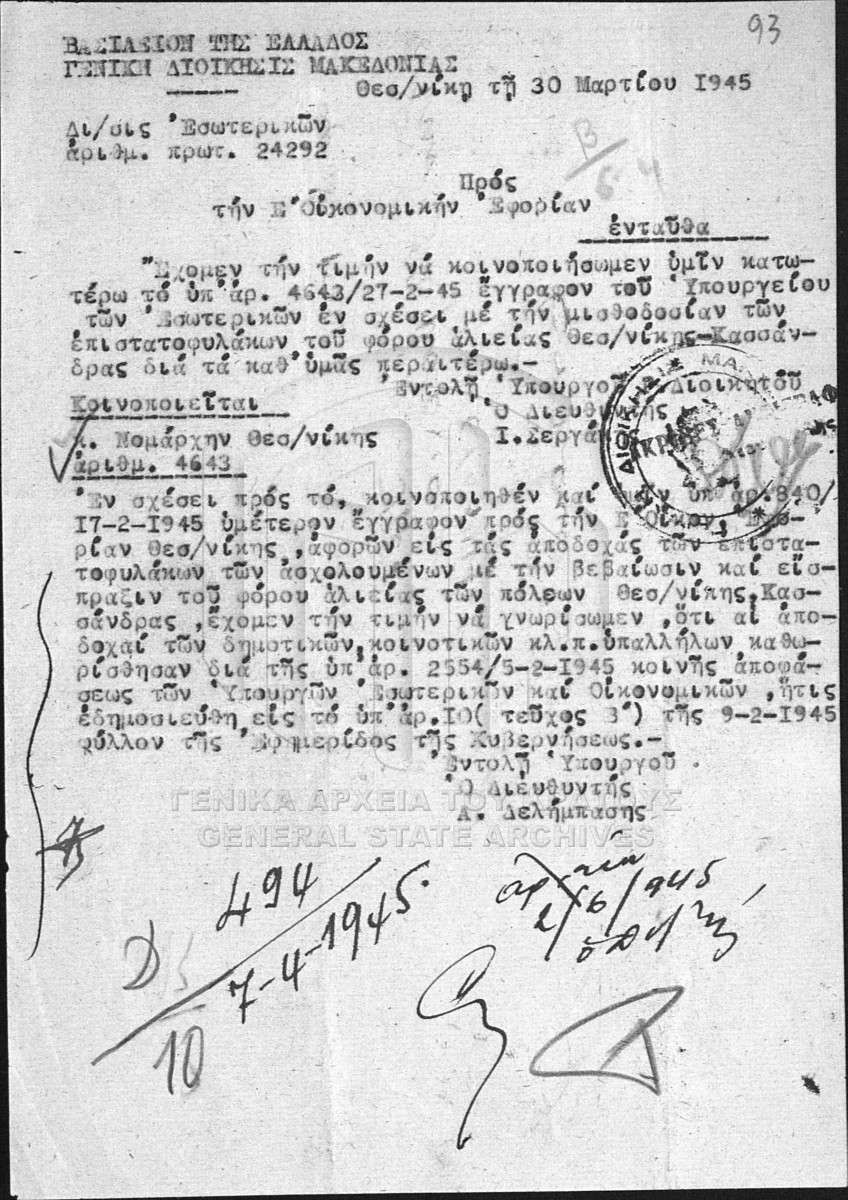 93
ΒΑΣΙΛΕΙΟΝ ΤΗΣ ΕΛΛΑΔΟΣ
ΓΕΝΙΚΗ ΔΙΟΙΚΗΣΙΣ ΜΑΚΕΔΟΝΙΑΣ
Θεσ/νίκη τῇ 30 Μαρτίου 1945
Δι/σις Ἐσωτερικῶν
ἀριθμ. πρωτ. 24292
Β/
Πρός
τήν Ε Οἰκονομικήν Ἐφορίαν
ἐνταῦθα
Ἔχομεν τήν τιμήν νά κοινοποιήσωμεν ὑμῖν κατω-
τέρω τό ὑπ' ἀρ. 4643/27-2-45 ἔγγραφον τοῦ Ὑπουργείου
τῶν Ἐσωτερικῶν ἐν σχέσει μέ τήν μισθοδοσίαν τῶν
ἐπιστατοφυλάκων τοῦ φόρου ἁλιείας Θεσ/νίκης-Κασσάν-
δρας διά τά καθ'ὑμᾶς περαιτέρω.-
Ἐντολῇ Ὑπουργοῦ Διοικητοῦ
Κοινοποιεῖται
Ὁ Διευθυντής
κ. Νομάρχην Θεσ/νίκης
Ι. Σεργά
ἀριθμ. 4643
ΔΙΟΙΚΗΣΙΣ ΜΑ
Ἐν σχέσει πρός τό, κοινοποιηθέν καί ἡμῖν ὑπ' ἀρ.840/
17-2-1945 ὑμέτερον ἔγγραφον πρός τήν Ε Οἰκον. Ἐφο-
ρίαν Θεσ/νίκης ,ἀφορῶν εἰς τάς ἀποδοχάς τῶν ἐπιστα-
τοφυλάκων τῶν ἀσχολουμένων μέ τήν βεβαίωσιν καί εἴσ-
πραξιν τοῦ φόρου ἁλιείας τῶν πόλεων Θεσ/νίκης,Κασ-
σάνδρας ,ἔχομεν τήν τιμήν νά γνωρίσωμεν ,ὅτι αἱ ἀπο-
δοχαί τῶν δημοτικῶν,κοινοτικῶν κλ.π.ὑπαλλήλων καθω-
ρίσθησαν διά τῆς ὑπ' ἀρ. 2554/5-2-1945 κοινῆς ἀποφά-
σεως τῶν Ὑπουργῶν Ἐσωτερικῶν καί Οἰκονομικῶν ,ἥτις
ἐδημοσιεύθη εἰς τό ὑπ' ἀρ.10( τεῦχος Β΄) τῆς 9-2-1945
φύλλον τῆς Ἐφημερίδος τῆς Κυβερνήσεως.-
Ἐντολῇ Ὑπουργοῦ
Ὁ Διευθυντής
Α. Δελήμπασης
ΓΕΝΙΚΑ ΑΡΧΕΙΑ ΤΟΥ ΚΡΑΤΟΥΣ
GENERAL STATE ARCHIVES
494
7-4-1945.
D
10
2/6/945